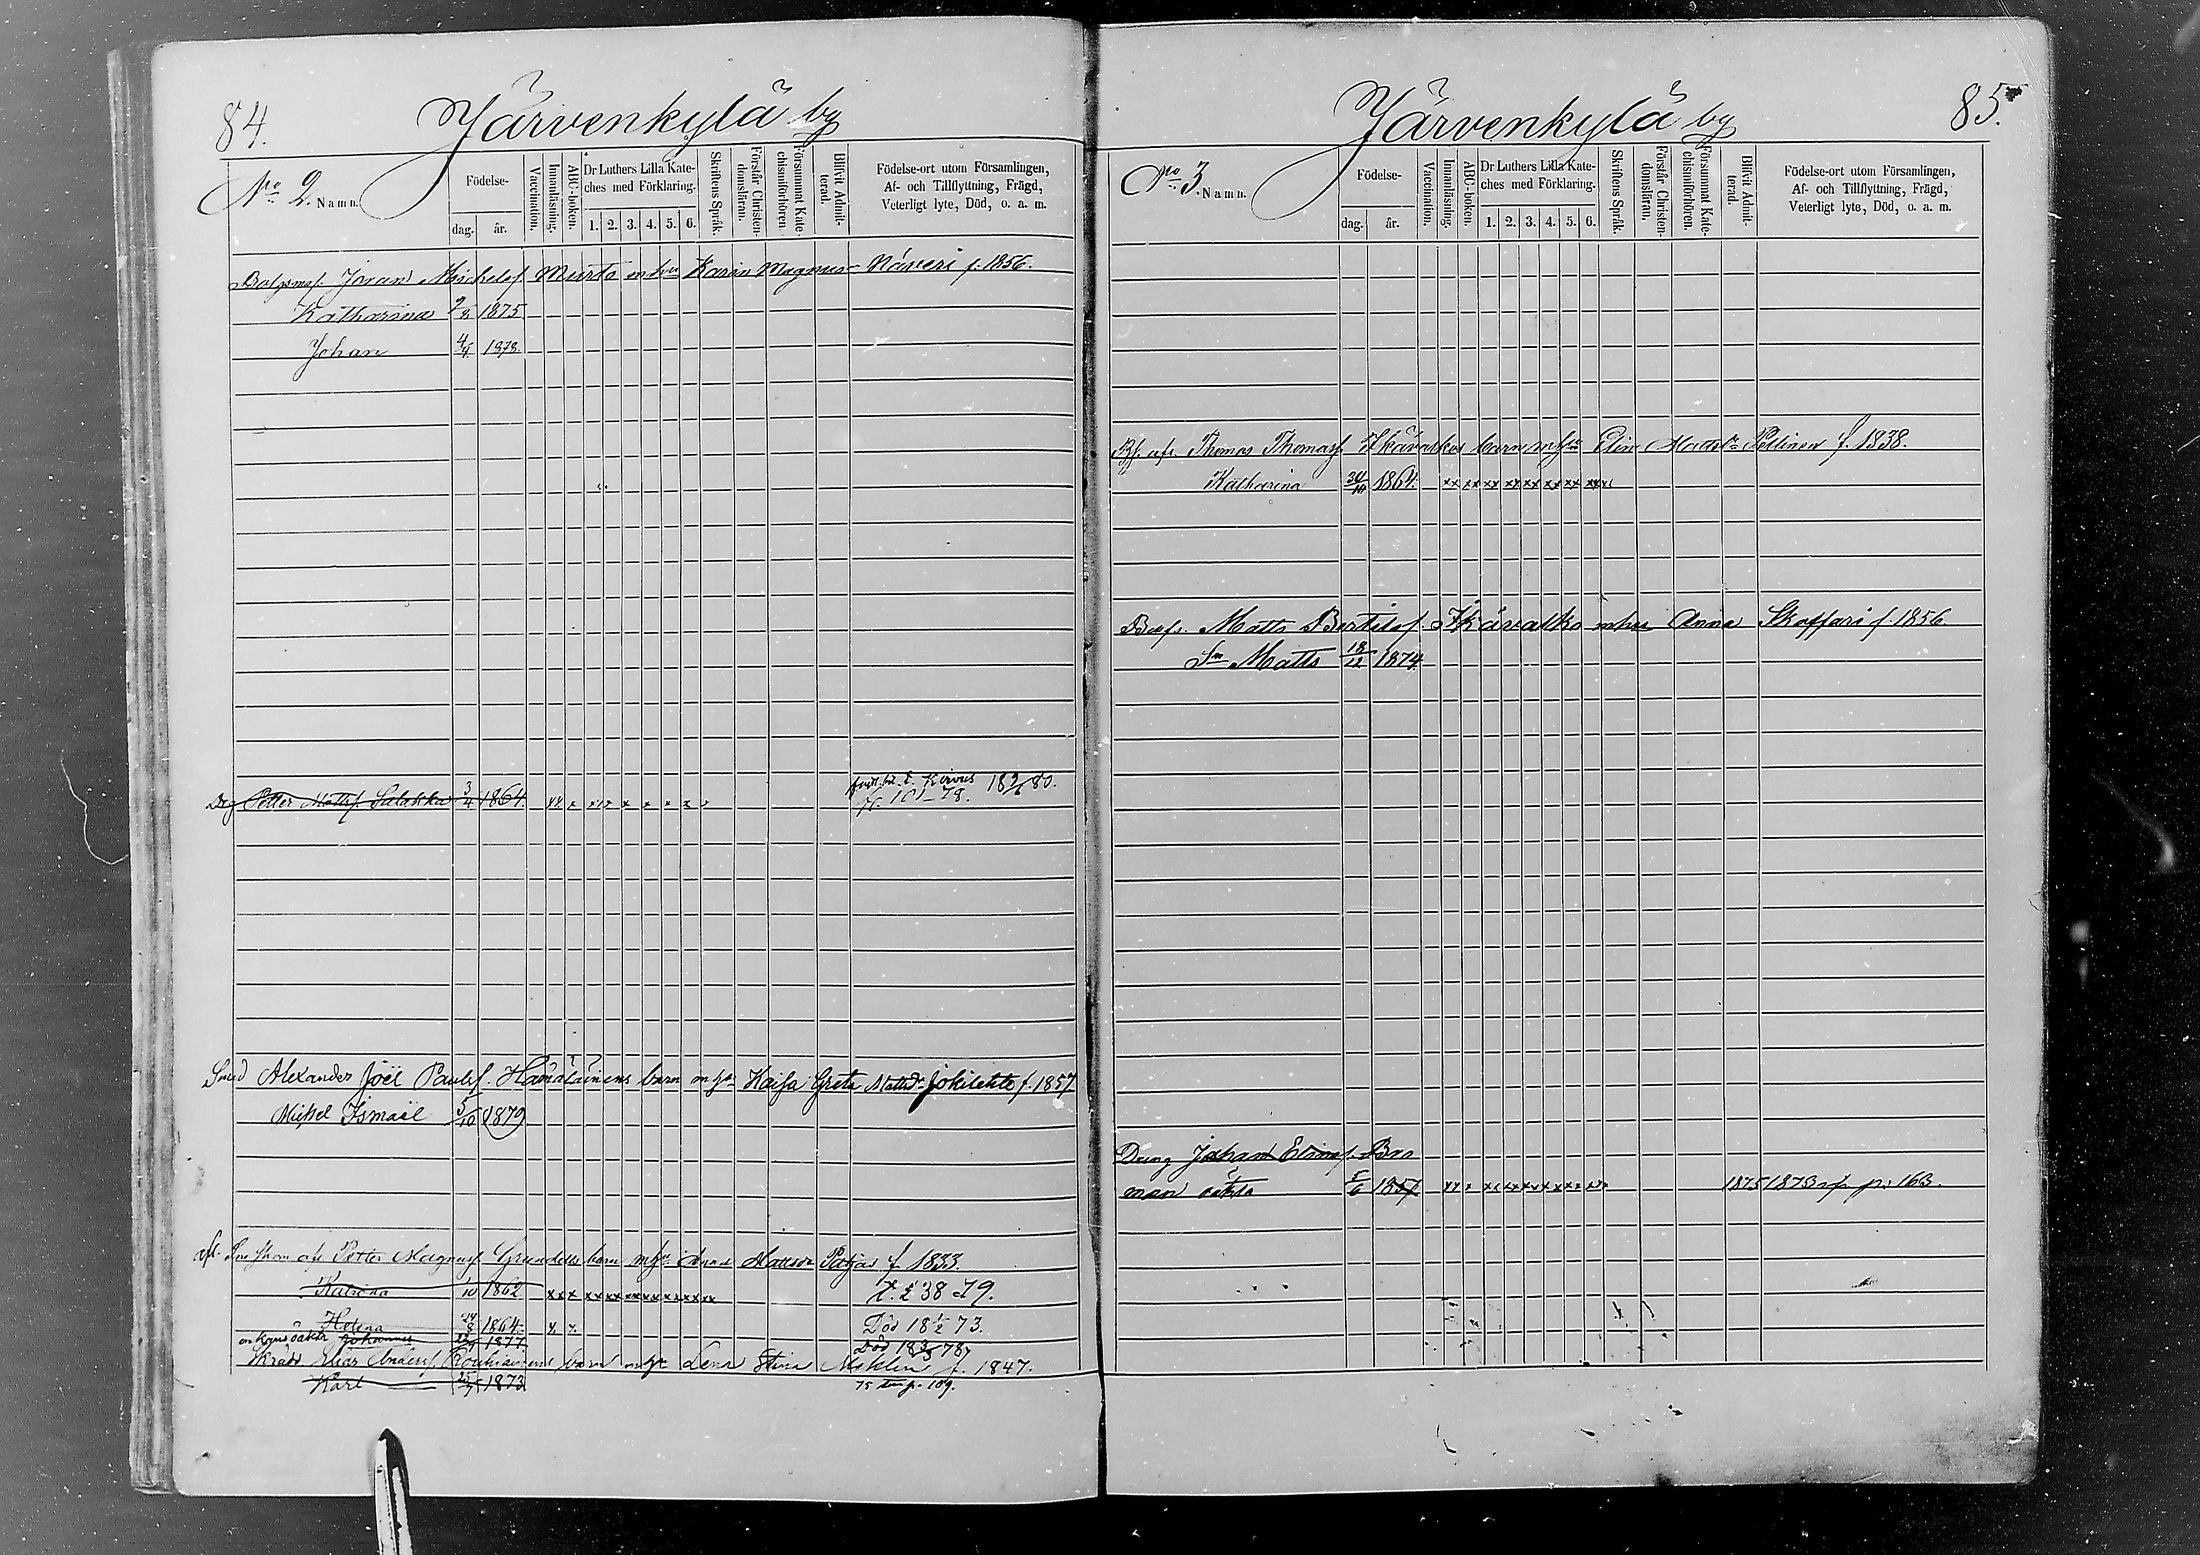 84.
Järvenkylä by
No 2. Namn.
Födelse-
dag. år.
Vaccination.
Innanläsning.
ABC-boken.
Dr Luthers Lilla Kate-
ches med Förklaring.
1. 2. 3. 4. 5. 6.
Skriftens Språk.
Förstår Christen-
domsläran.
Försummat Kate-
chismiförhören.
Blifvit Admit-
terad.
Födelse-ort utom Församlingen,
Af- och Tillflyttning, Frägd,
Veterligt lyte, Död, o. a. m.
Johan Michelsf. Murto mhu Karin Magnus Näveri f. 1856.
Katharina 2/8 1875
Johan 4/4 1878
Petter Mattsf. Salakka 3/4 1864 xx x xx x x x x
Kivus 18 2/6 80.
101-78.
Smed Alexander Joël Paulsf. Hämäläinens barn mhu Kaisa Greta Mattsdr Jokilehto f. 1857
Mickel Ismael 5/10 1879
Petter Magnusf. Grundells barn mhu Anna Mattsdr Patjas f 1833.
Katrina 1/10 1862 xxx xx xx xx xx xx xx
38-79.
Helena 1864 x x
Död 18 1/2 73.
Johannes 1877
Död 18 78
Elias Andersf. barn mhu Lena Stina f. 1847.
Karl 25 1873
75 p. 109.
Järvenkylä by
85.
No 3. Namn.
Födelse-
dag. år.
Vaccination.
Innanläsning.
ABC-boken.
Dr Luthers Lilla Kate-
ches med Förklaring.
1. 2. 3. 4. 5. 6.
Skriftens Språk.
Förstår Christen-
domsläran.
Försummat Kate-
chismiförhören.
Blifvit Admit-
terad.
Födelse-ort utom Församlingen,
Af- och Tillflyttning, Frägd,
Veterligt lyte, Död, o. a. m.
Thomas Thomasf. Ikävalkos barn mhu Elin Mattsdr Pellinen f. 1838.
Katharina 30/10 1864 xx xx xx xx xx xx xx xx
Matts Bertilsf. Ikävalko mhu Anna Skaffari f. 1856
Sn Matts 18/12 1874
Dreng Johan Bro
man oäkta 5/6 1857 xx x xx xx xx xx xx xx
1875 1875 p. 163.